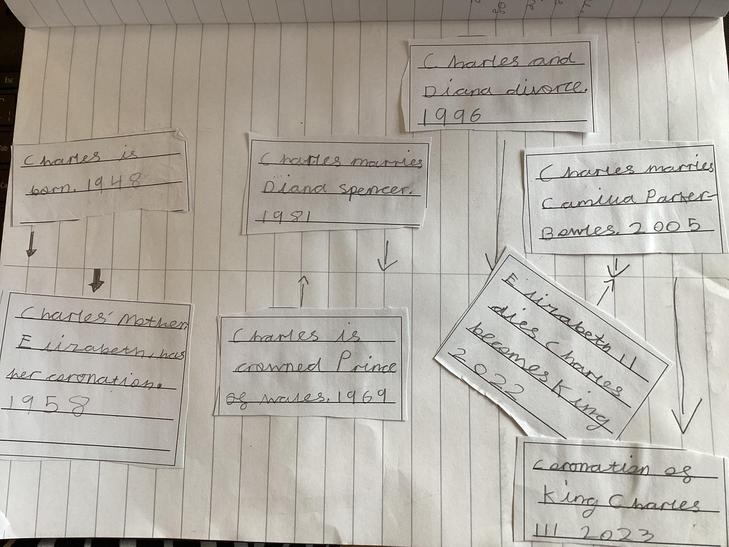 Charles and
Diana divorce.
1996
Charles is
born. 1948
Charles marries
Diana spencer.
1981
Charles marries
Camilla Parker-
Bowles. 2005
Charles' mother
Elizabeth, has
her coronation.
1958
Charles is
crowned Prince
of wales. 1969
Elizabeth II
dies Charles
becomes King
2022
Coronation of
King Charles
III 2023